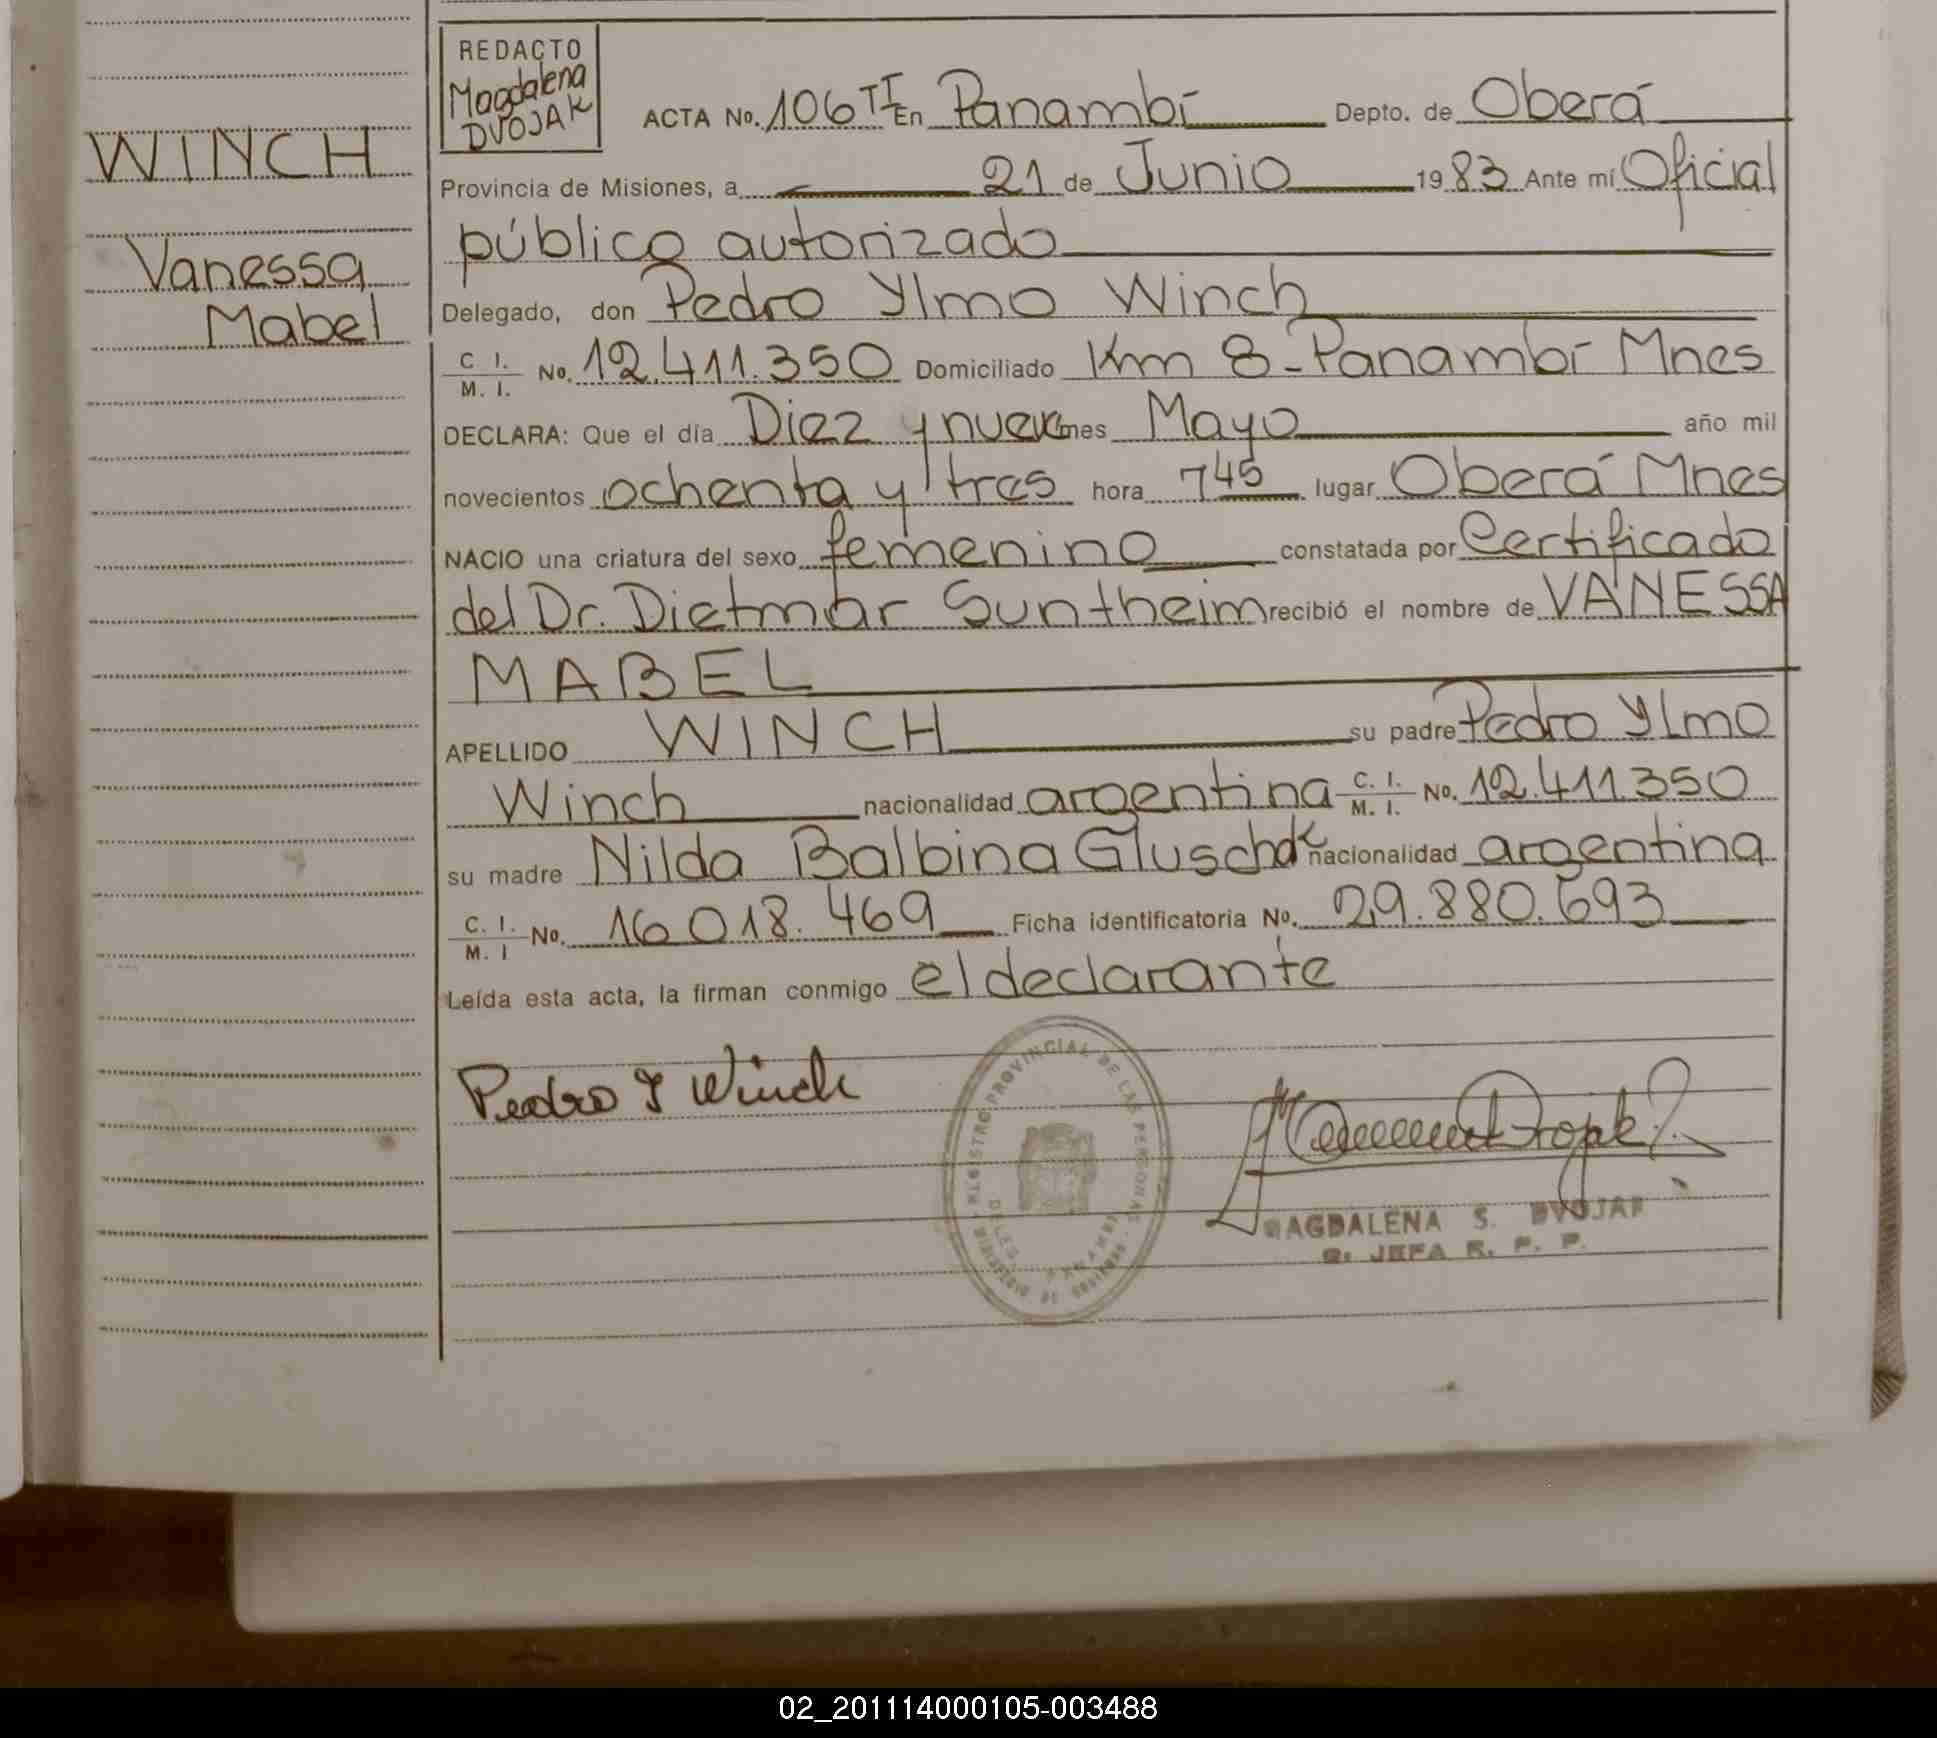 REDACTO
Magdalena
DVOJAK
WINCH
Vanessa
Mabel
ACTA No. 106 TI En Panambí Depto. de Oberá
Provincia de Misiones, a 21 de Junio 1983 Ante mí Oficial
público autorizado
Delegado, don Pedro Ylmo Winch
C. I. M. I. No. 12.411.350 Domiciliado Km 8-Panambí Mnes
DECLARA: Que el día Diez y nueve mes Mayo año mil
novecientos ochenta y tres hora 7 45 lugar Oberá Mnes
NACIO una criatura del sexo femenino constatada por Certificado
del Dr. Dietmar Suntheim recibió el nombre de VANESSA
MABEL
APELLIDO WINCH su padre Pedro Ylmo
Winch nacionalidad argentina C. I. M. I. No. 12.411.350
su madre Nilda Balbina Gluschak nacionalidad argentina
C. I. M. I No. 16 018.469 Ficha identificatoria No. 29.880.693
Leída esta acta, la firman conmigo el declarante
Pedro Y Winch
REGISTRO PROVINCIAL DE LAS PERSONAS
PANAMBI
MAGDALENA S. DVOJAK
JEFA R. P. P.
02_201114000105-003488